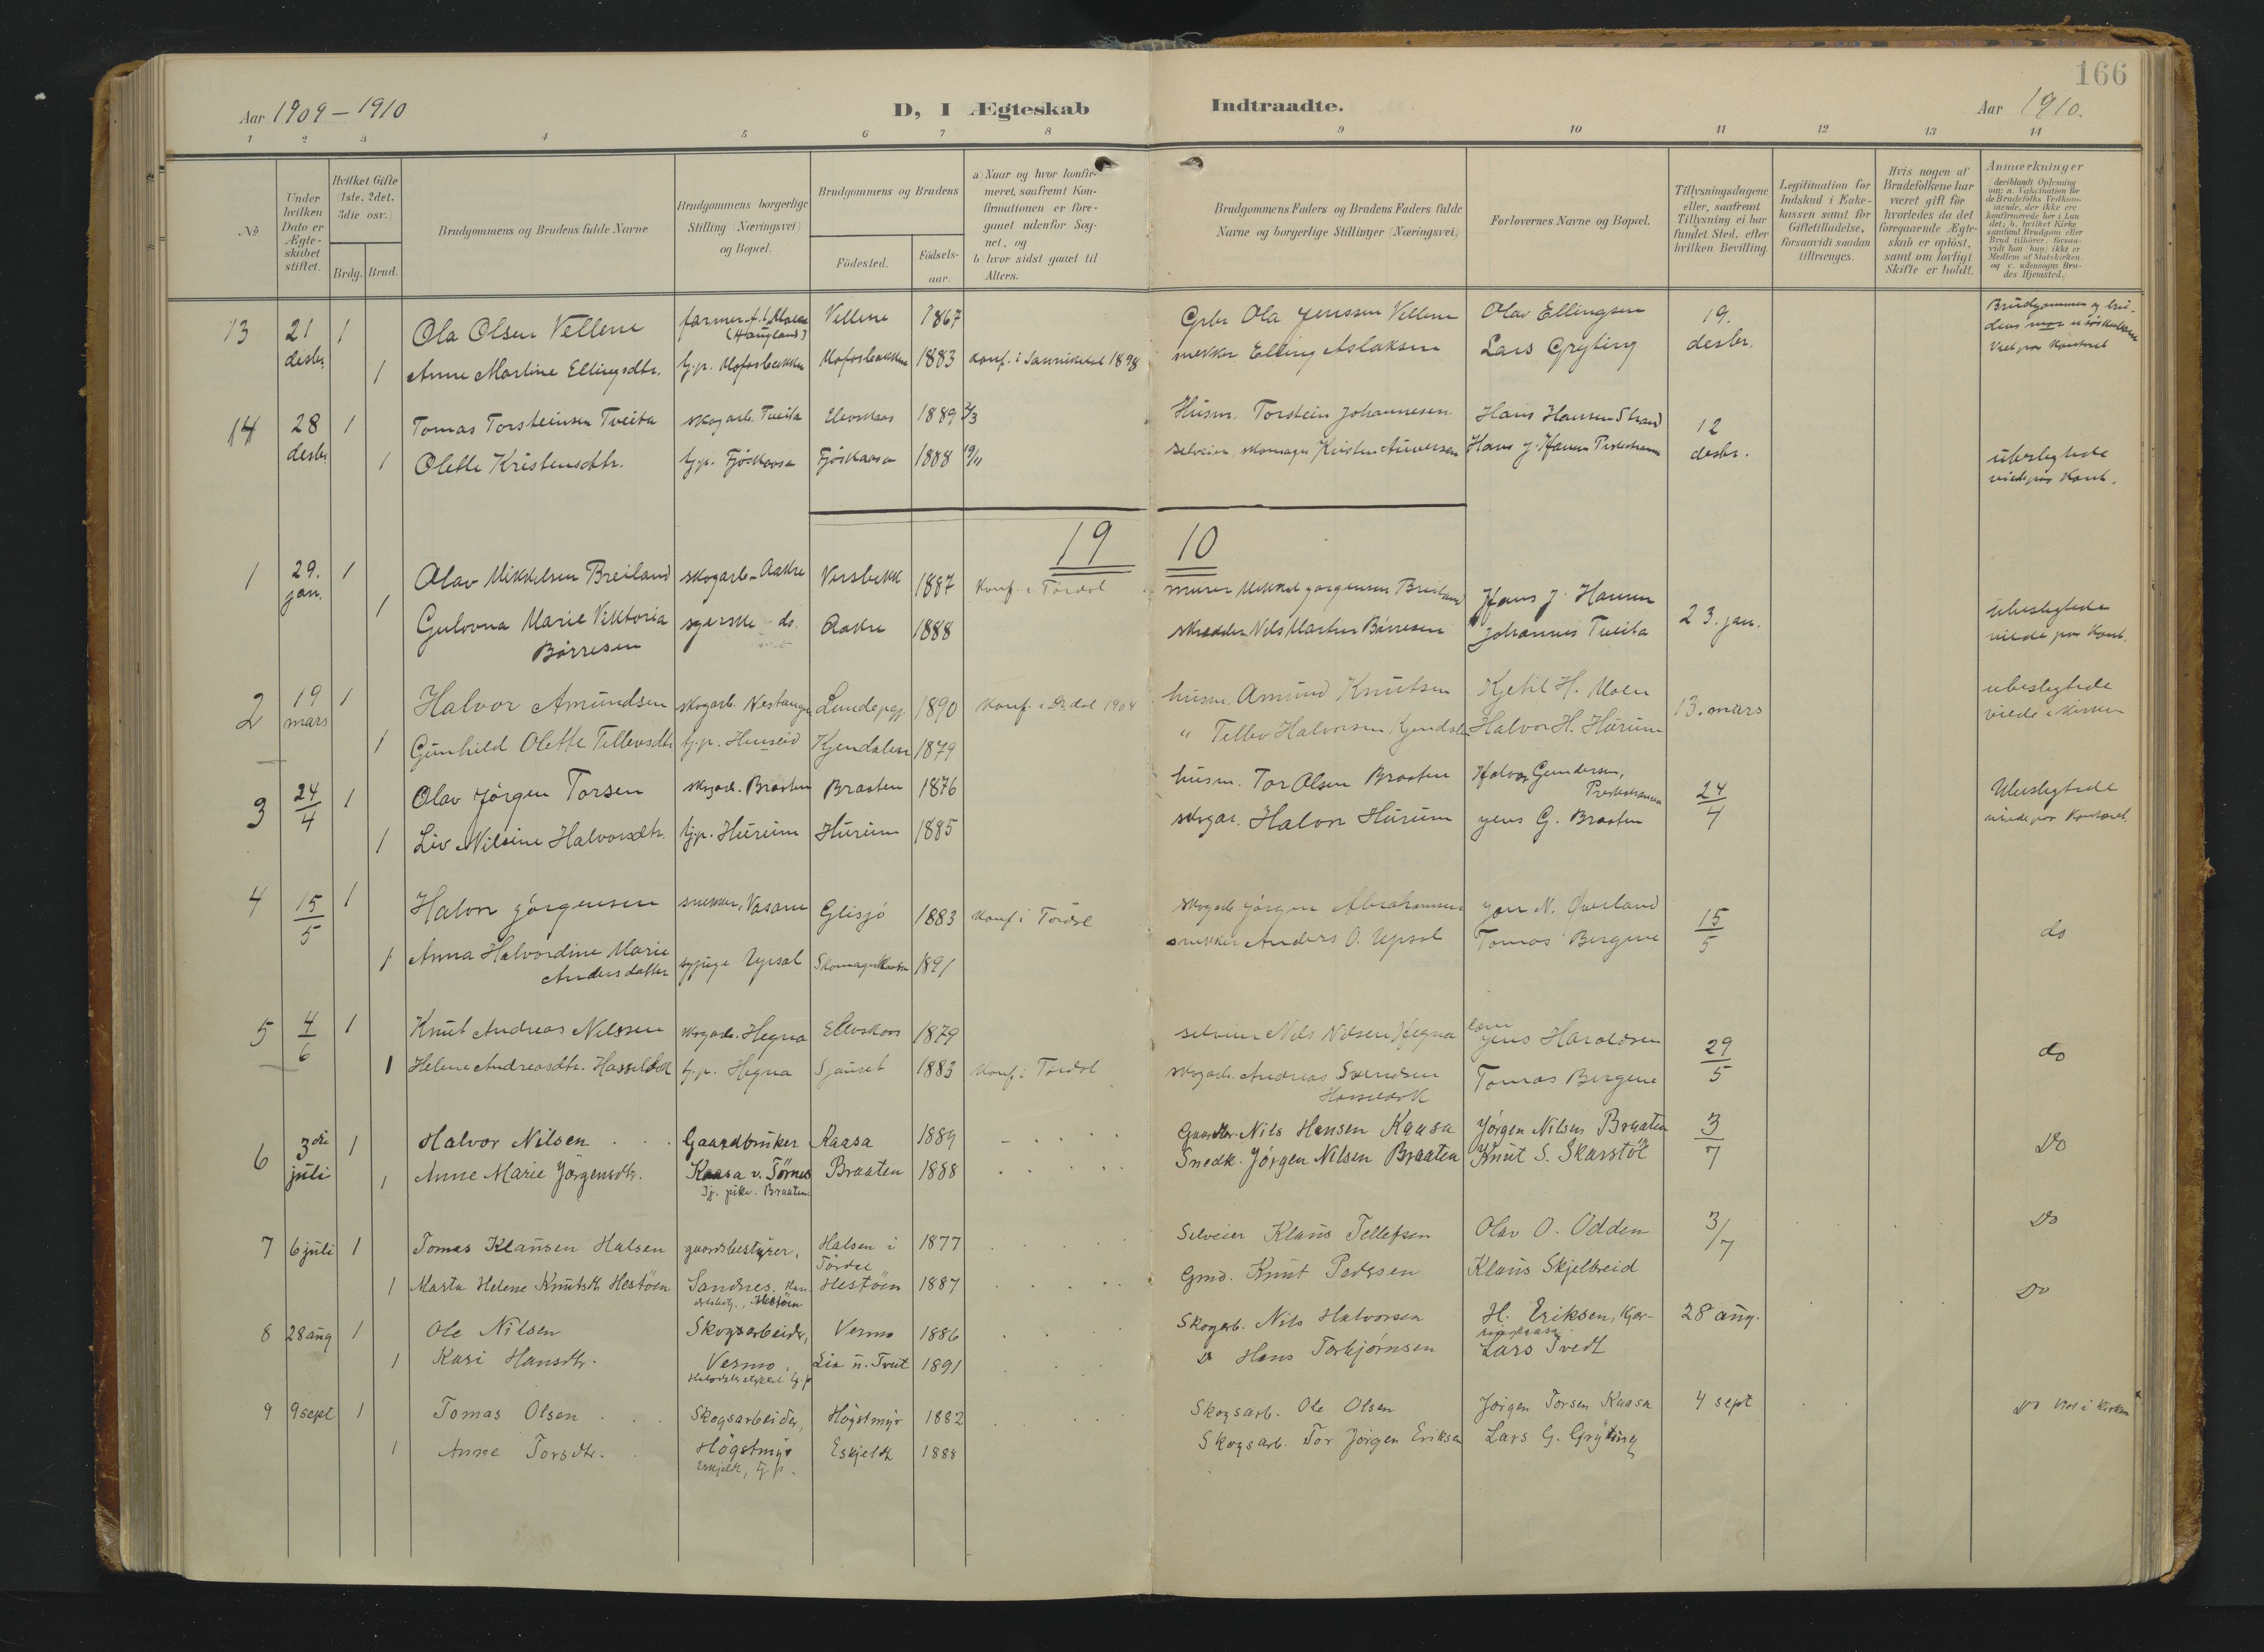 166
Aar 1909 – 1910
D, I Ægteskab
Indtraadte.
Aar 1910.
1 2 3 4 5 6 7 8 9 10 11 12 13 14
No
Under hvilken Dato er Ægteskabet stiftet.
Hvilket Gifte (1ste, 2det, 3die osv.)
Brdg. Brud.
Brudgommens og Brudens fulde Navne
Brudgommens borgerlige Stilling (Næringsvei) og Bopæl.
Brudgommens og Brudens
Födested.
Födselsaar.
a) Naar og hvor konfirmeret, saafremt Konfirmationen er foregaaet udenfor Sognet, og
b) hvor sidst gaaet til Alters.
Brudgommens Faders og Brudens Faders fulde Navne og borgerlige Stillinger (Næringsvei)
Forlovernes Navne og Bopæl.
Tillysningsdagene eller, saafremt Tillysning ei har fundet Sted, efter hvilken Bevilling.
Legitimation for Indskud i Enkekassen samt for Giftetilladelse, forsaavidt saadan tiltrænges.
Hvis nogen af Brudefolkene har været gift för hvorledes da det foregaaende Ægteskab er oplöst, samt om lovligt Skifte er holdt.
Anmærkninger
(deriblandt Oplysning om: a. Vakcination for de Brudefolks Vedkommende, der ikke ere konfirmerede her i Landet; b. hvilket Kirkesamfund Brudgom eller Brud tilhører, forsaavidt han (hun) ikke er Medlem af Statskirken. og c. udensogns Brudes Hjemsted.)
13 21 1 Ola Olsen Vellene farmer Vellene 1867 Gbr Ola Jenssen Vellene Olav Ellingsen 19.
desbr. 1 Anne Martine Ellingsdtr. tj.p. Mofosbakken Mofosbakken 1883 konf. i Sannikedal 1898 snekker Elling Aslaksen Lars Gryting desbr.
14 28 1 Tomas Torsteinsen Tveita skogarb. Tveita Elevskaas 1889 2/3 Husm. Torstein Johannesen Hans Hansen Strand 12
desbr. 1 Olette Kristensdtr. tj.p. Fjöskaasa Fjöskaasa 1888 19/11 selveier, skomager Kristen Hans J. Hansen desbr. ubeslegtede
viede paa Kont.
19 10
1 29. 1 Olav Mikkelsen Breiland skogarb. Aakre Versbekk 1887 konf. i Tördal murer Mikkel Jörgensen Breiland Hans J. Hansen ubeslegtede
jan. 1 Gulovna Marie Viktoria Börresen syerske do. Aakre 1888 skredder Nils Martin Börresen Johannes Tveita 23. jan. viede paa Kont.
2 19 1 Halvor Amundsen skogarb. Lunde pgj. 1890 konf. i Dr.dal 1904 husm. Amund Knutsen Kjetil H. Moen 13. mars ubeslegtede
mars 1 Gunhild Olette Tellevsdtr. tj.p. Kjendalen 1879 " Tellev Halvorsen Kjendalen Halvor H. Hurum viede i Kirken
3 24/4 1 Olav Jörgen Torsen skogarb. Braaten Braaten 1876 husm. Tor Olsen Braaten Halvor Gundersen, 24/4 Ubeslegtede
1 Liv Nilsine Halvorsdtr. tj.p. Hurum Hurum 1885 skogar. Halvor Hurum Jens G. Braaten viede paa Kontoret.
4 15/5 1 Halvor Jörgensen snekker, Vasane Glisjö 1883 konf. i Tördal skogarb. Jörgen Abrahamsen Jon N. Överland 15/5 do
1 Anna Halvordine Marie Andersdatter sypige Upsal Skomagerkaasa 1891 snekker Anders O. Upsal Tomas Bergene
5 4/6 1 Knut Andreas Nilssen skogarb. Hegna Ellevskaas 1879 selveier Nils Nilsen Hegna Jens Haraldsen 29/5 do
1 Helene Andreasdtr. Hasseldalk tj.p. Hegna Sjauset 1883 konf. i Tördal skogarb. Andreas Svendsen Tomas Bergene
6 3die juli 1 Halvor Nilsen Gaardbruker Kaasa 1889 Gaardbr. Nils Hansen Kaasa Jörgen Nilsen Braaten 3/7 Do
1 Anne Marie Jörgensdtr. Kaasa v. Törnes Tj. pike. Braaten Braaten 1888 Snedk. Jörgen Nilsen Braaten Knut S. Skarstöl
7 6 juli 1 Tomas Klausen Halsen gaardsbestyrer, Halsen i Tördal 1877 Selveier Klaus Tellefsen Olav O. Odden 3/7 Do
1 Marta Helene Knutsdtr Hestöen Sandnes. Hestöen Hestöen 1887 Grmd. Knut Pedersen Klaus Skjelbreid
8 28 aug 1 Ole Nilsen Skogsarbeider, Vermo 1886 Skogarb. Nils Halvorsen H. Eriksen, 28 aug. Do
1 Kari Hansdtr. Vermo. Lia u. Tveit 1891 Do Hans Torbjörnsen Lars Tvedt
9 9 sept 1 Tomas Olsen Skogsarbeider, Högstmyr 1882 Skogsarb. Ole Olsen Jörgen Torsen Kaasa 4 sept Do Viet i Kirken
1 Anne Torsdtr. Högstmyr Eskjeldt, tj.p. Eskjeldt 1888 Skogsarb. Tor Jörgen Eriksen Lars G. Gryting